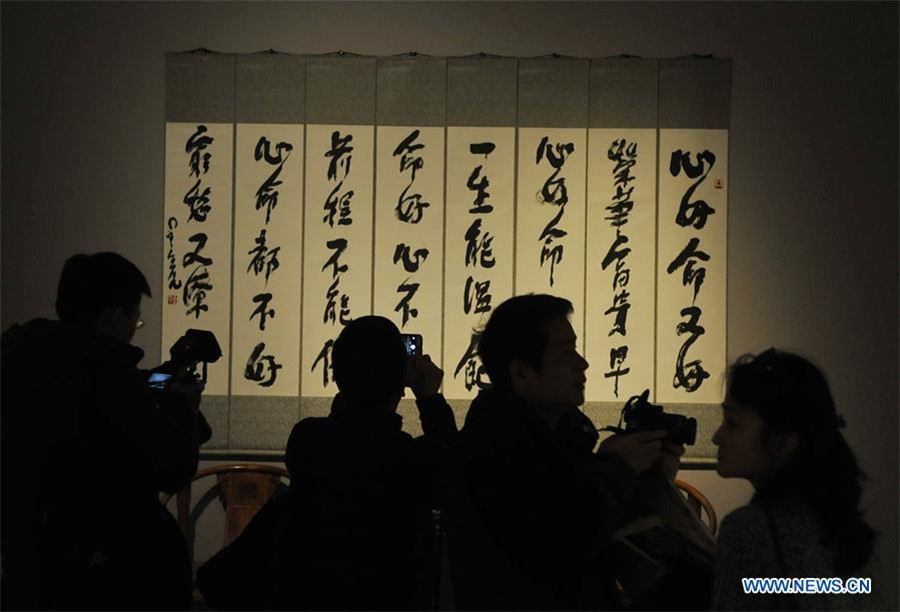 心好命又好
榮華富貴早
心好命
一生能溫飽
命好心不
前程不能
心命都不好
窮愁又潦
WWW.NEWS.CN